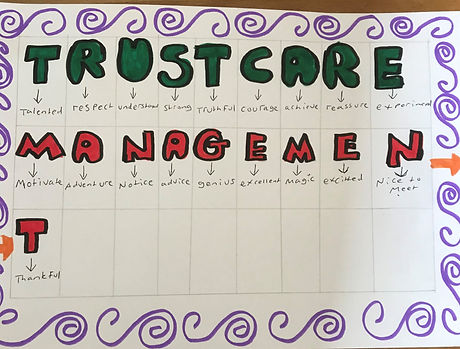 TRUSTCARE
Talented respect understand strong Truthful courage achieve reassure experiment
MANAGEMEN
Motivate Adventure Notice advice genius excellent magic excitted Nice to
Meet
T
Thankful